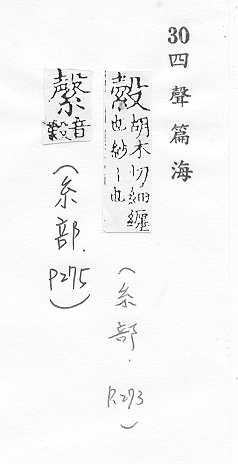 30四聲篇海
縠胡木切細纏
也紗丨也
(糸部. P.273)
音
(糸部. P275)